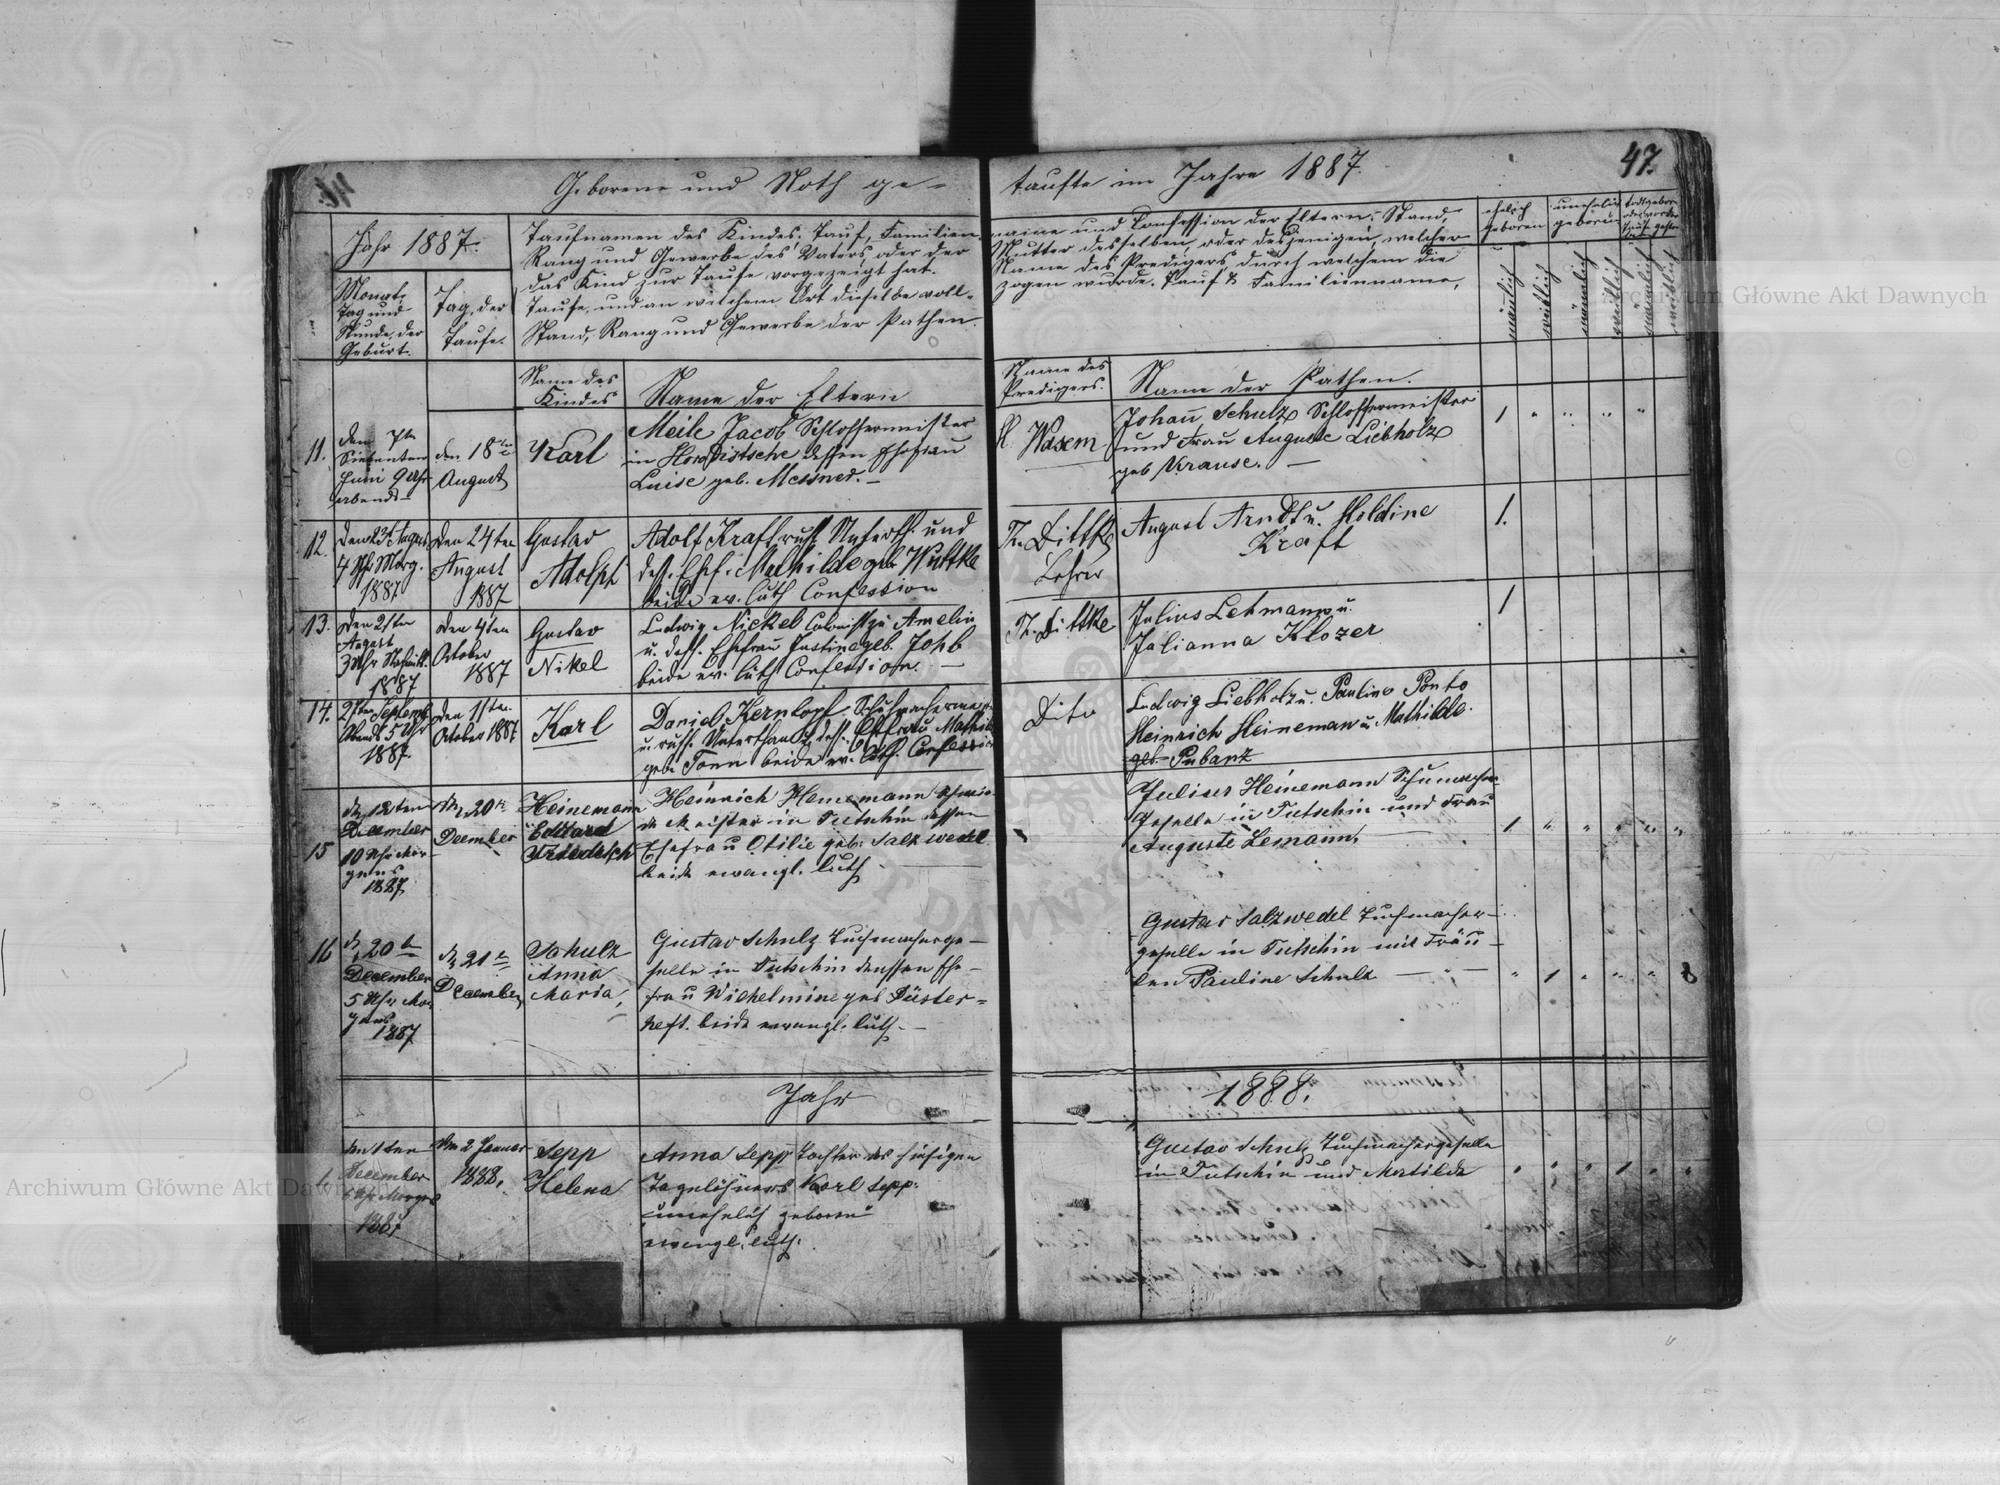 Geborene und Noth ge-
taufte im Jahre 1887.
47.
Jahr 1887.
Monat,
Tag und
Stunde, der
Geburt.
Tag, der
Taufe.
Taufnamen des Kindes. Tauf, Familien-
Rang und Gewerbe des Vaters, oder der
das Kind zur Taufe vorgezeigt hat.
Taufe, und an welchem Ort dieselbe voll-
Stand, Rang und Gewerbe der Pathen.
name und Confession der Eltern, Stand,
Mutter desselben, oder desjenigen, welcher
Name des Predigers, durch welchem die
zogen wurde. Tauf & Familienname,
ehelich
geboren
unehelich
geboren
männlich
weiblich
männlich
weiblich
männlich
weiblich
Name des
Kindes
Name der Eltern
Name des
Predigers.
Name der Pathen.
11.
den 7ten
Siebenten
Juni 9 Uhr
abends
den 18ten
August
Karl
Meile Jacob Schlossermeister
in dessen Ehefrau
Luise geb. Messner. —
Wasem
Johann Schulz Schlossermeister
und Frau Auguste Liebholz
geb Krause. —
1
12.
Den 22ten August
4 Uhr Morg.
1887
Den 24ten
August
1887
Gustav
Adolph
Adolf Kraft russ. Unterth. und
dess. Ehef. Mathilde geb. Wuttke
beide ev. luth Confession
Dittke
Lehrer
August Arndt u. Holdine
Kraft
1.
13.
Den 21ten
August
3 Uhr Nachmitt.
1887
Den 4ten
October
1887
Gustav
Nikel
Ludwig Nickel Colonist zu Amelin
u. dess. Ehefrau Justine geb. Johb
beide ev. luth Confession. —
Dittke
Julius Lehmann u.
Julianna Klozer
1
14.
21ten Septemb.
Abends 5 Uhr
1887
Den 11ten
October 1887
Karl
Daniel Kernkopf Schuhmacherma
u. russ. Unterthan u dess. Ehefrau Mathil
geb. Tonn beide ev. luth. Confession
Dito
Ludwig Liebholz u. Pauline Ponto
Heinrich Heineman u. Mathilde
geb. Pubanz
15
d. 12ten
December
10 Uhr Mor-
gens
1887
d. 20ten
December
Heinemann
Eduard
Friedrich
Heinrich Heinemann Schmie-
de Meister in Tutschin dessen
Ehefrau Otilie geb: Salzwedel
beide evangl. luth
Julius Heinemann Schumacher
Geselle in Tutschin und Frau
Auguste Lemann,
1 " " " " "
16
d. 20ten
December
5 Uhr Mor
gens
1887
d. 21ten
December
Schulz
Anna
Maria,
Gustav Schulz Tuchmacherge-
selle in Tutschin denssen Ehe-
frau Wilhelmine geb Düster-
heft. beide evangl. luth. —
Gustav Salzwedel Tuchmacher-
geselle in Tutschin mit Fräu-
len Pauline Schulz — " —
" 1 " " " 8
Jahr
1888.
1.
den 1ten
December
Uhr Morgens
1887
Den 2 Januar
1888.
Sepp
Helena
Anna Sepp Tochter des hiesigen
Tagelöhners Karl Sepp:
unehelich geboren
evangl. luth.
Gustav Schulz Tuchmachergeselle
in Tutschin und Matilde
" " " 1 " "
Archiwum Główne Akt Dawnych
Archiwum Główne Akt Dawnych